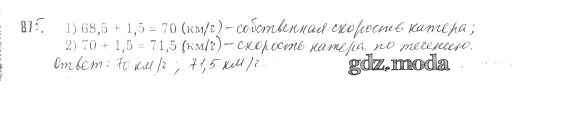 875. 1) 68,5 + 1,5 = 70 (км/г) – собственная скорость катера;
2) 70 + 1,5 = 71,5 (км/г) – скорость катера по течению.
Ответ: 70 км/г ; 71,5 км/г.
gdz.moda